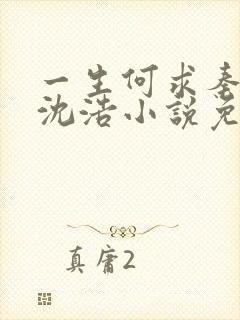 一生何求秦
沈浩小說免
真庸2